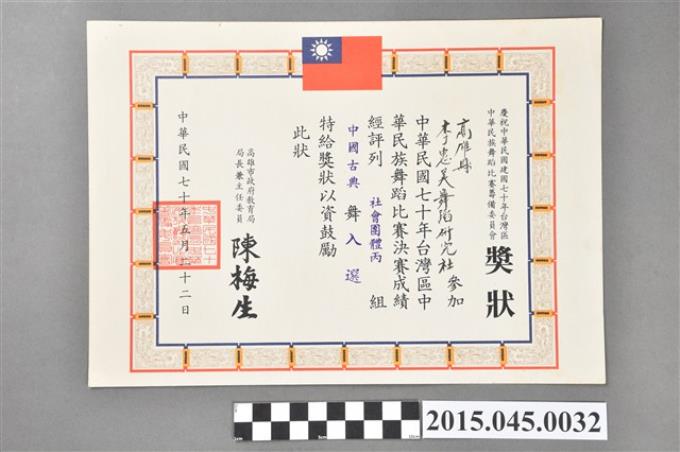 慶祝中華民國建國七十年台灣區
中華民族舞蹈比賽籌備委員會
獎狀
高雄縣
李忠美舞蹈研究社 參加
中華民國七十年台灣區中
華民族舞蹈比賽決賽成績
經評列 社會團體丙 組
中國古典 舞 入選
特給獎狀以資鼓勵
此狀
高雄市政府教育局
局長兼主任委員
陳梅生
中華民國七十年五月二十二日
2015.045.0032